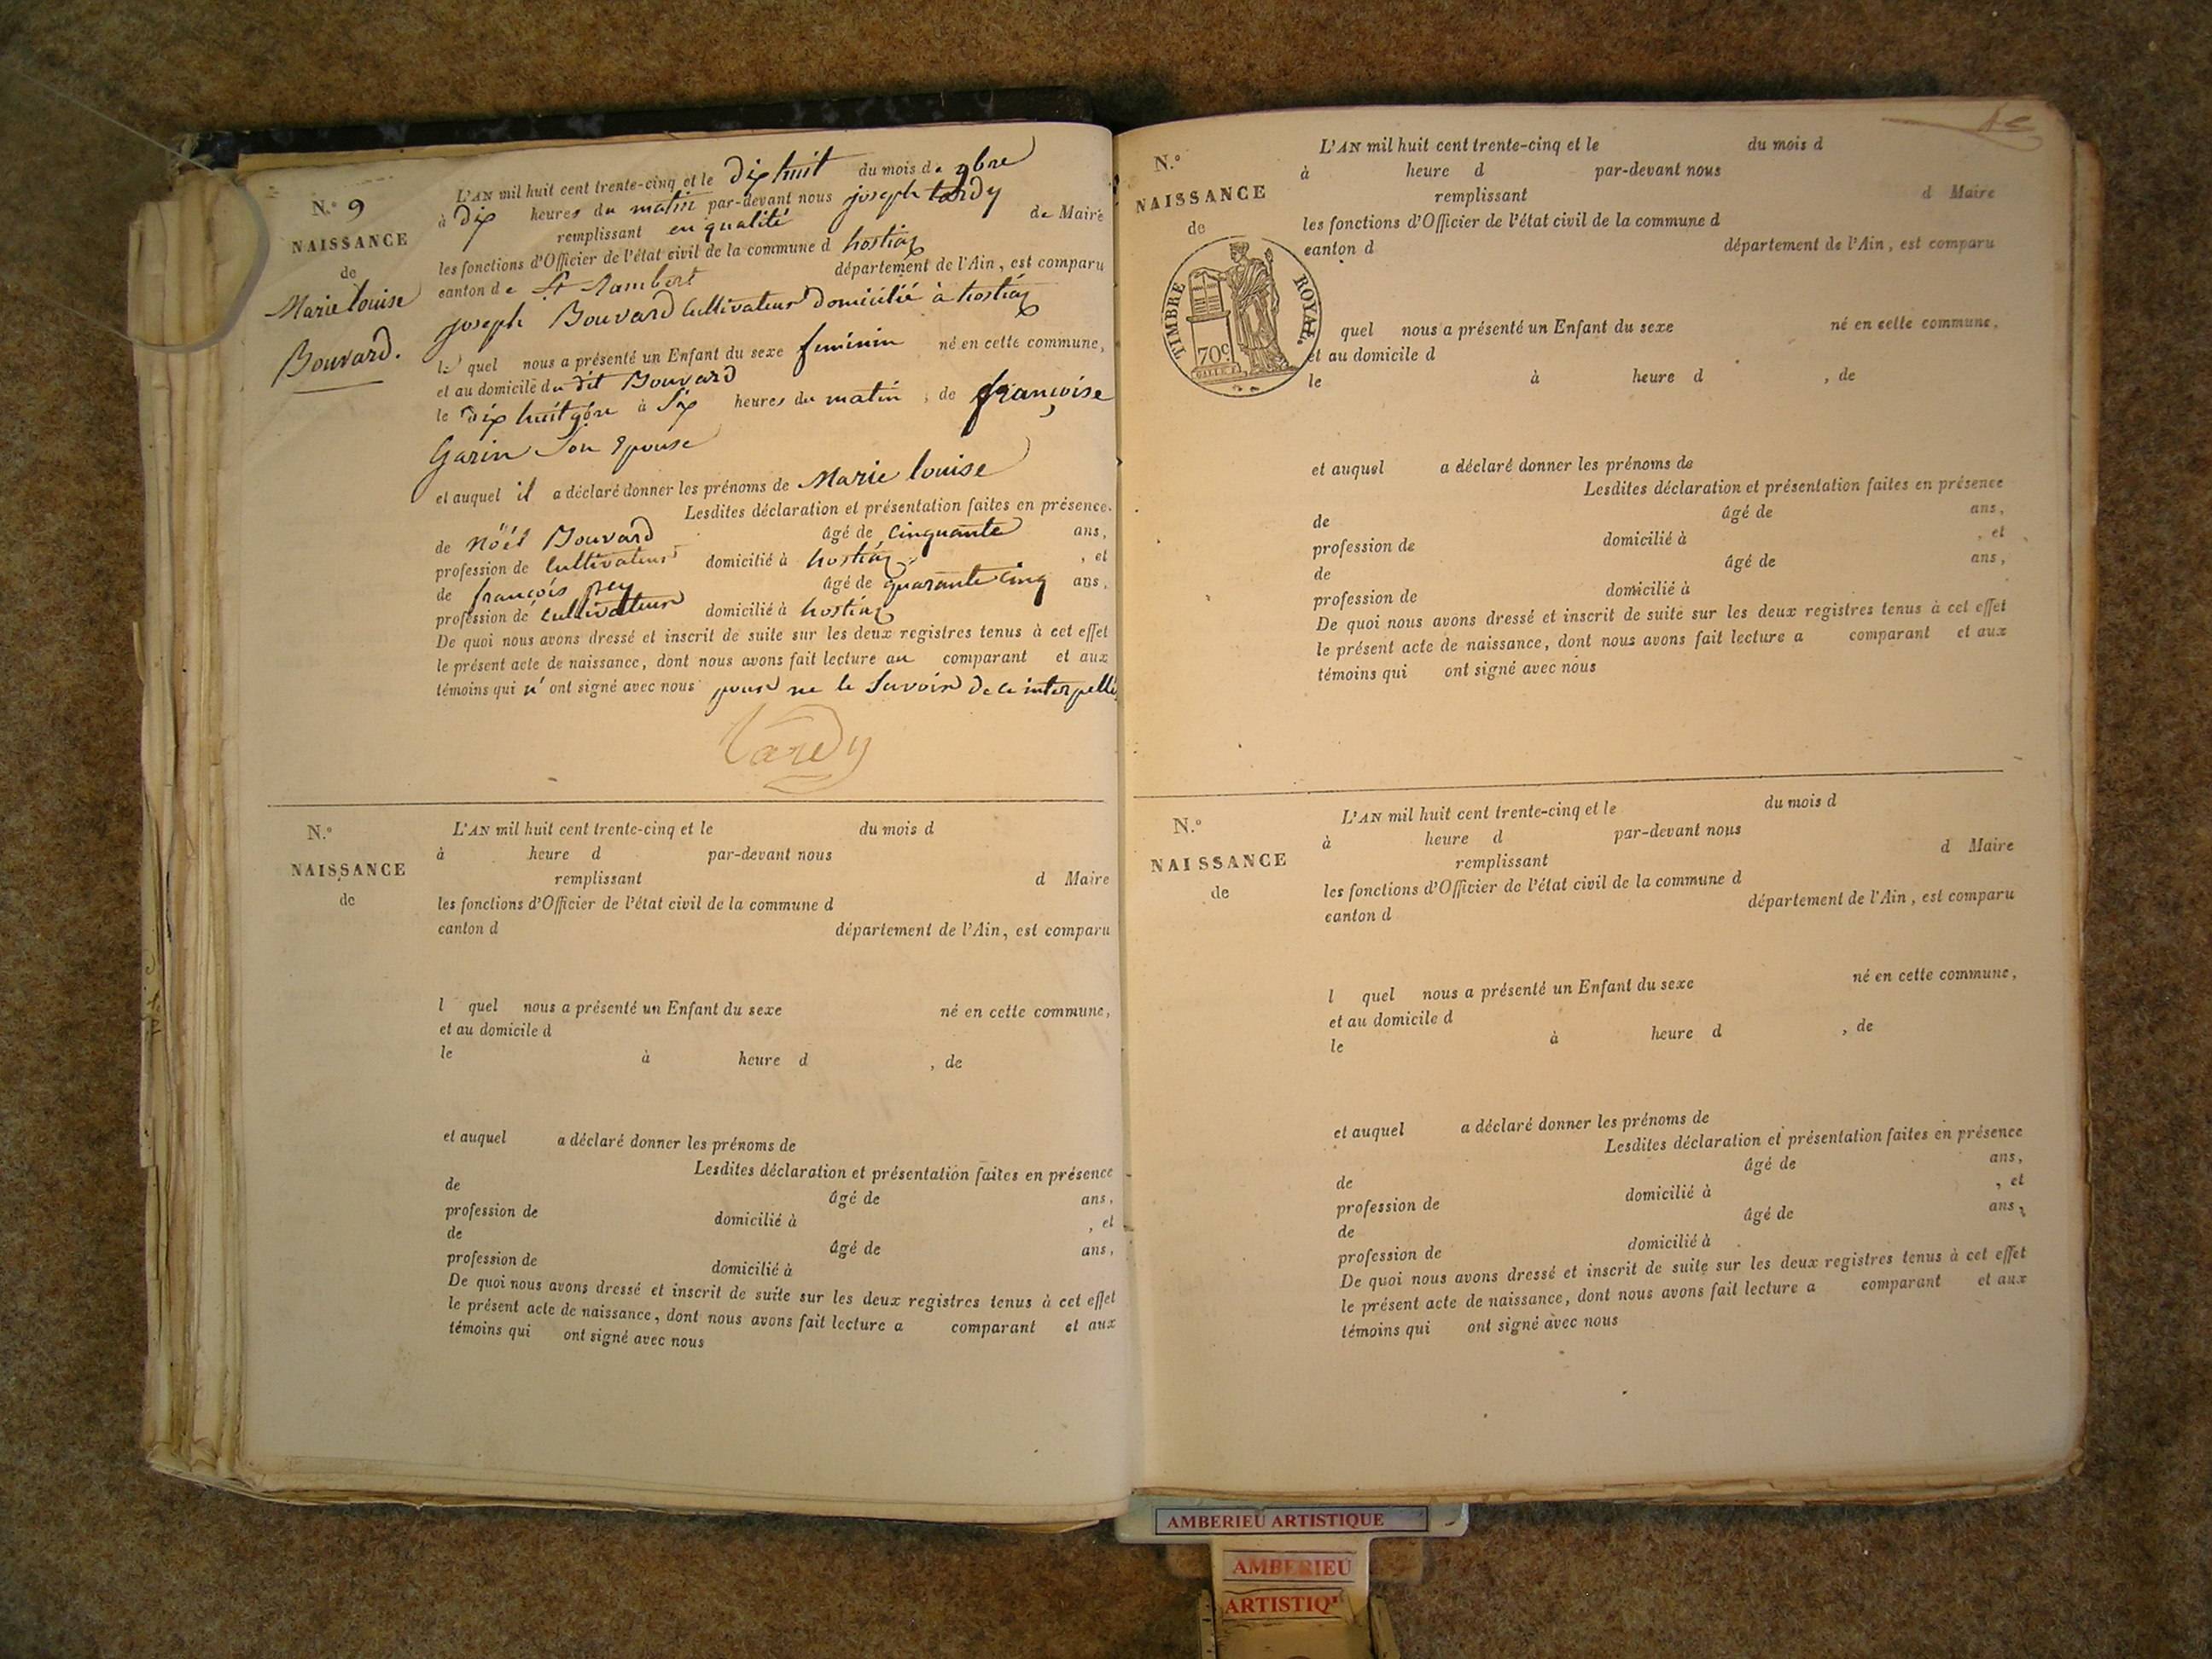 N.° 9
NAISSANCE
de
Marie louise
Bouvard.
L'AN mil huit cent trente-cinq et le dix huit du mois de 9bre
à dix heures du matin par-devant nous joseph tardy
remplissant en qualité de Maire
les fonctions d'Officier de l'état civil de la commune d hostiaz
canton de St Rambert département de l'Ain, est comparu
joseph Bouvard cultivateur domicilié à hostiaz
le quel nous a présenté un Enfant du sexe feminin né en cette commune,
et au domicile du dit Bouvard
le dix huit 9bre à Six heures du matin, de françoise
Garin Son Epouse
et auquel il a déclaré donner les prénoms de Marie louise
Lesdites déclaration et présentation faites en présence
de Nöël Bouvard âgé de cinquante ans,
profession de cultivateur domicilié à hostiaz, et
de françois rey âgé de quarante cinq ans,
profession de cultivateur domicilié à hostiaz
De quoi nous avons dressé et inscrit de suite sur les deux registres tenus à cet effet
le présent acte de naissance, dont nous avons fait lecture au comparant et aux
témoins qui n'ont signé avec nous pour ne le Savoir de ce interpellé
tardy
N.°
NAISSANCE
de
L'AN mil huit cent trente-cinq et le du mois d
à heure d par-devant nous
remplissant d Maire
les fonctions d'Officier de l'état civil de la commune d
canton d département de l'Ain, est comparu
l quel nous a présenté un Enfant du sexe né en cette commune,
et au domicile d
le à heure d , de
et auquel a déclaré donner les prénoms de
Lesdites déclaration et présentation faites en présence
de âgé de ans,
profession de domicilié à , et
de âgé de ans,
profession de domicilié à
De quoi nous avons dressé et inscrit de suite sur les deux registres tenus à cet effet
le présent acte de naissance, dont nous avons fait lecture a comparant et aux
témoins qui ont signé avec nous
N.°
NAISSANCE
de
TIMBRE ROYAL.
70c
L'AN mil huit cent trente-cinq et le du mois d
à heure d par-devant nous
remplissant d Maire
les fonctions d'Officier de l'état civil de la commune d
canton d département de l'Ain, est comparu
quel nous a présenté un Enfant du sexe né en cette commune,
et au domicile d
le à heure d , de
et auquel a déclaré donner les prénoms de
Lesdites déclaration et présentation faites en présence
de âgé de ans,
profession de domicilié à , et
de âgé de ans,
profession de domicilié à
De quoi nous avons dressé et inscrit de suite sur les deux registres tenus à cet effet
le présent acte de naissance, dont nous avons fait lecture a comparant et aux
témoins qui ont signé avec nous
N.°
NAISSANCE
de
L'AN mil huit cent trente-cinq et le du mois d
à heure d par-devant nous
remplissant d Maire
les fonctions d'Officier de l'état civil de la commune d
canton d département de l'Ain, est comparu
l quel nous a présenté un Enfant du sexe né en cette commune,
et au domicile d
le à heure d , de
et auquel a déclaré donner les prénoms de
Lesdites déclaration et présentation faites en présence
de âgé de ans,
profession de domicilié à , et
de âgé de ans,
profession de domicilié à
De quoi nous avons dressé et inscrit de suite sur les deux registres tenus à cet effet
le présent acte de naissance, dont nous avons fait lecture a comparant et aux
témoins qui ont signé avec nous
AMBERIEU ARTISTIQUE
AMBERIEU
ARTISTIQ